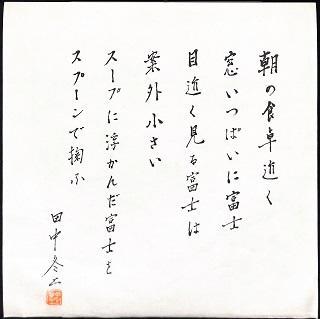 朝の食卓近く
窓いっぱいに富士
目近く見る富士は
案外小さい
スープに浮かんだ富士を
スプーンで掬ふ
田中冬二